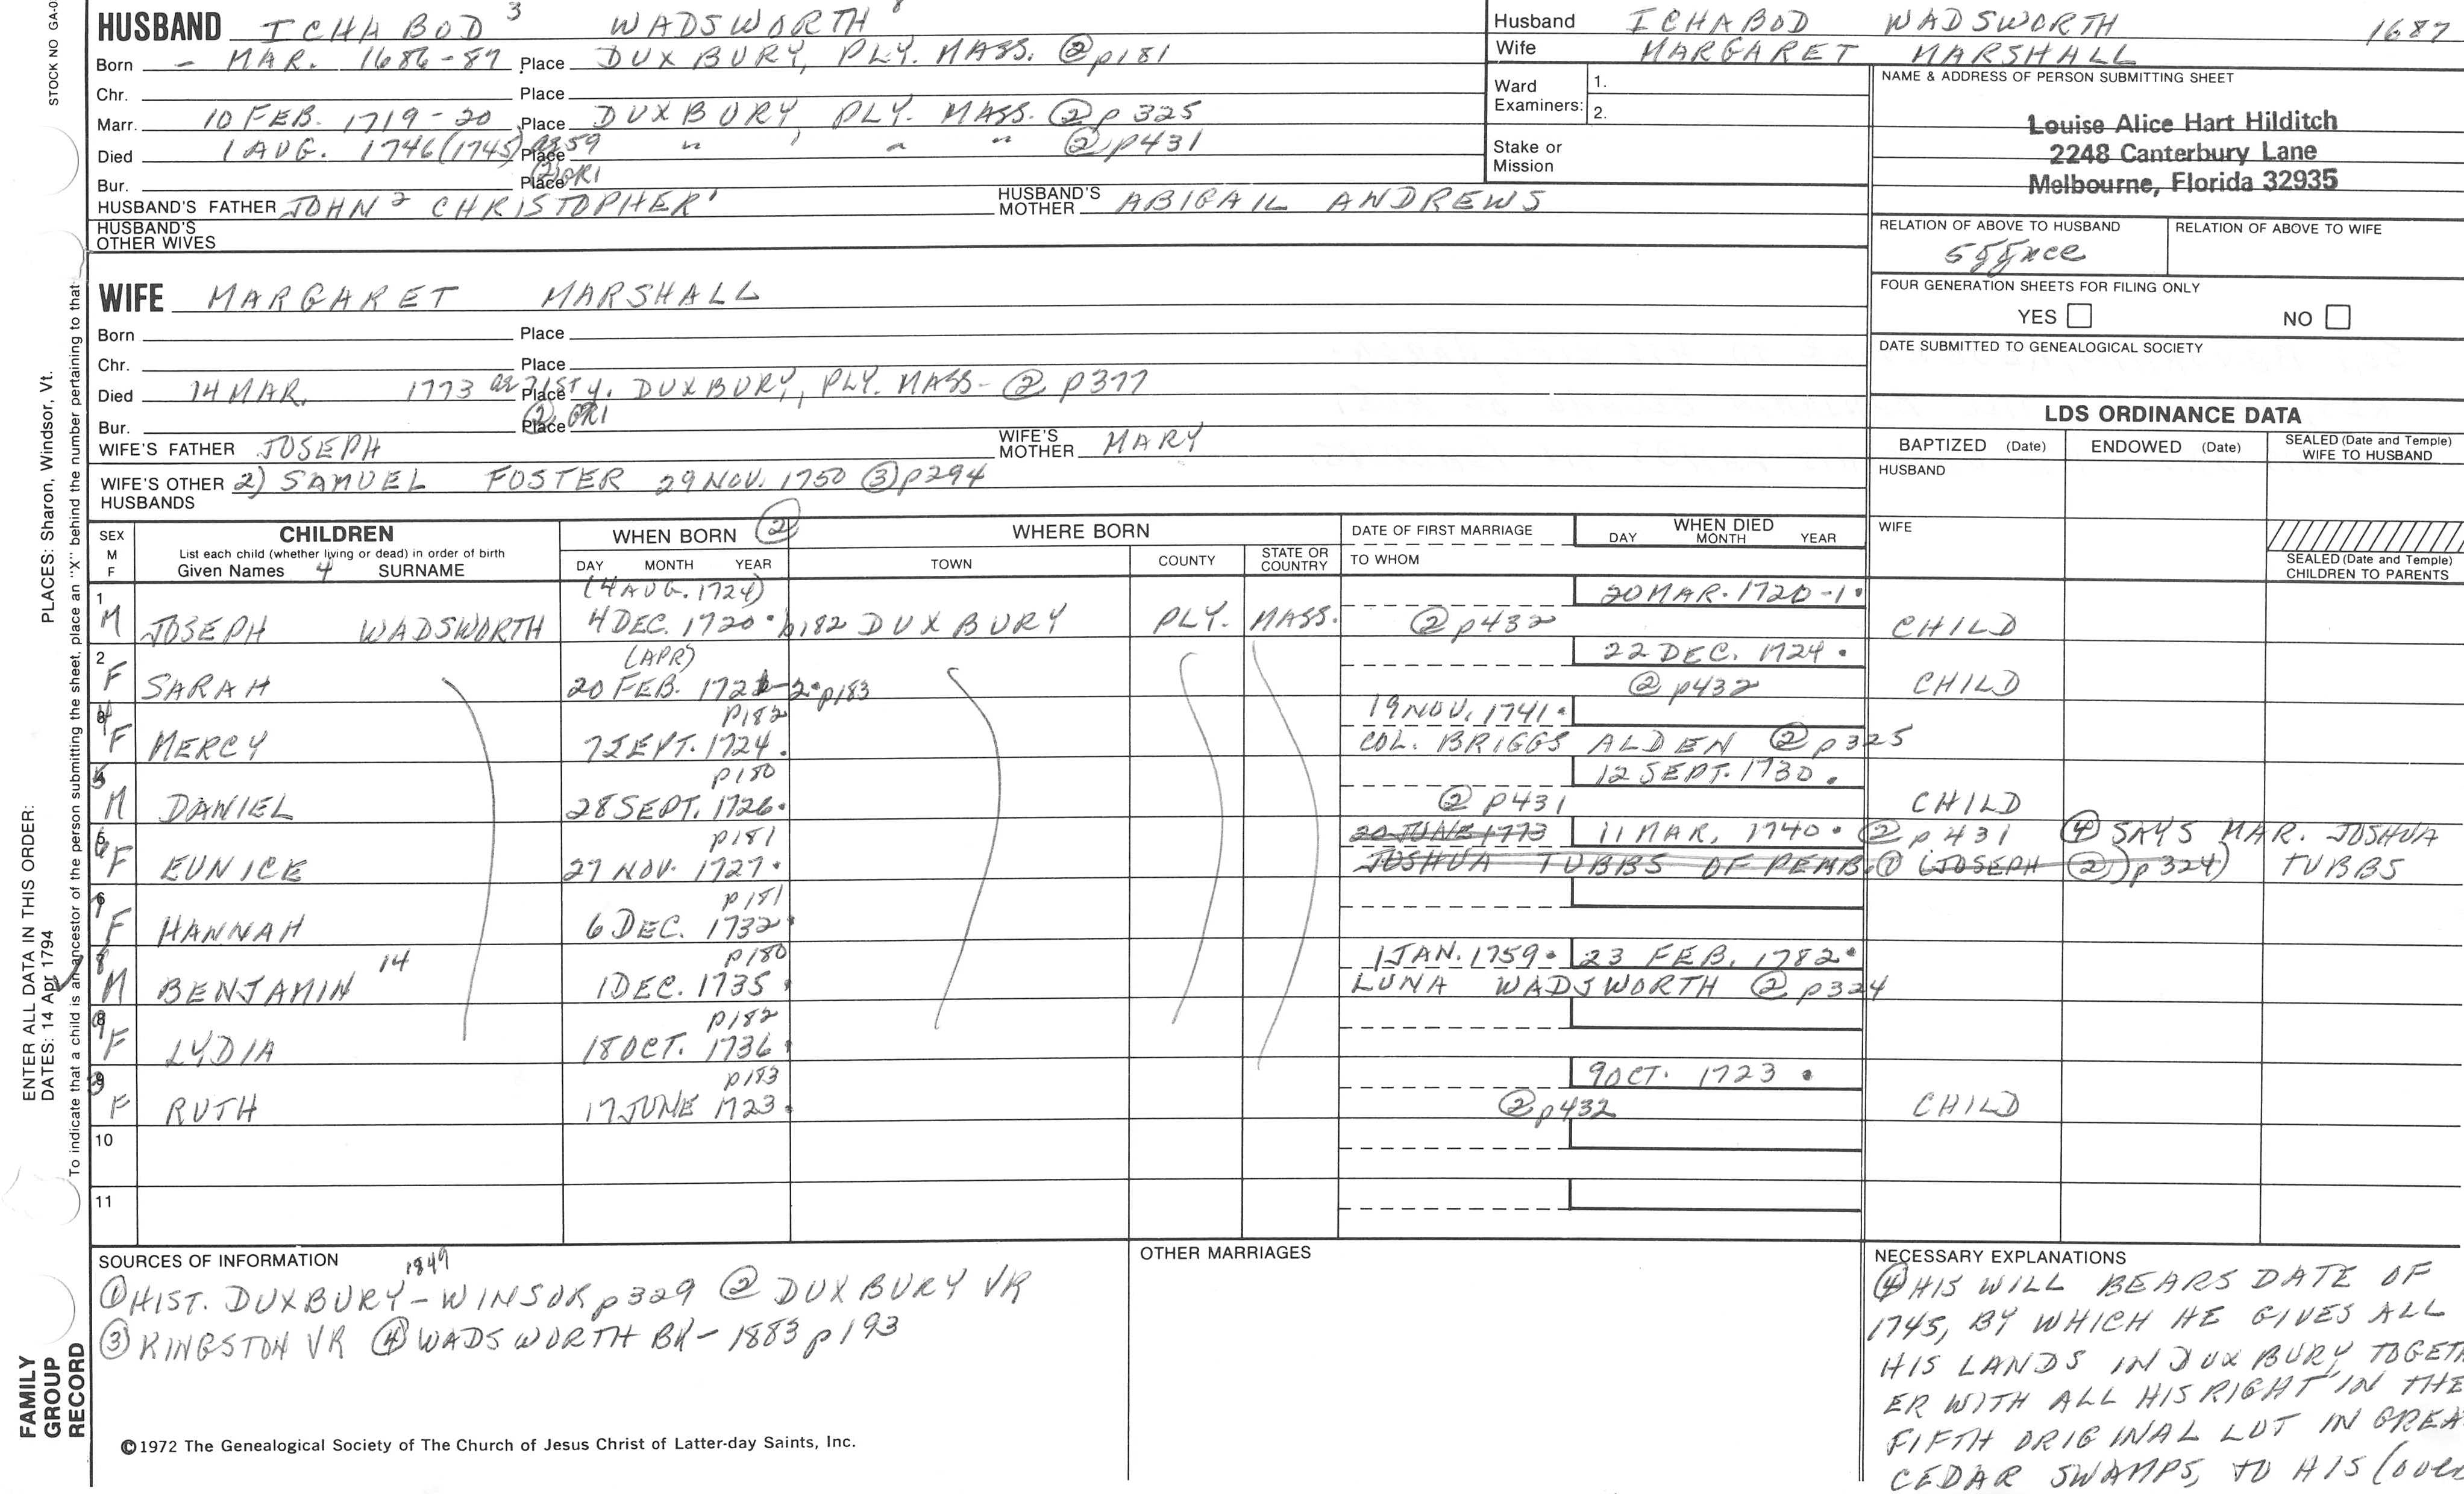 STOCK NO GA-0
HUSBAND ICHABOD 3 WADSWORTH
Born - MAR. 1686-87 Place DUXBURY, PLY. MASS. ② p181
Chr. Place
Marr. 10 FEB. 1719-20 Place DUXBURY, PLY. MASS. ② p325
Died 1 AUG. 1746 (1745) ae 59 Place " , " " ② p431
Bur. Place ② GR1
HUSBAND'S FATHER JOHN 2 CHRISTOPHER 1 HUSBAND'S MOTHER ABIGAIL ANDREWS
HUSBAND'S OTHER WIVES
Husband ICHABOD WADSWORTH 1687
Wife MARGARET MARSHALL
Ward Examiners: 1.
2.
Stake or Mission
NAME & ADDRESS OF PERSON SUBMITTING SHEET
Louise Alice Hart Hilditch
2248 Canterbury Lane
Melbourne, Florida 32935
RELATION OF ABOVE TO HUSBAND RELATION OF ABOVE TO WIFE
FOUR GENERATION SHEETS FOR FILING ONLY
YES NO
DATE SUBMITTED TO GENEALOGICAL SOCIETY
WIFE MARGARET MARSHALL
Born Place
Chr. Place
Died 14 MAR. 1773 ae 71st y. Place DUXBURY, PLY. MASS- ② p377
Bur. Place ② GR1
WIFE'S FATHER JOSEPH WIFE'S MOTHER MARY
WIFE'S OTHER HUSBANDS 2) SAMUEL FOSTER 29 NOV. 1750 ③ p294
LDS ORDINANCE DATA
BAPTIZED (Date) ENDOWED (Date) SEALED (Date and Temple) WIFE TO HUSBAND
HUSBAND
WIFE
SEALED (Date and Temple) CHILDREN TO PARENTS
SEX M F CHILDREN WHEN BORN ② WHERE BORN DATE OF FIRST MARRIAGE WHEN DIED
List each child (whether living or dead) in order of birth
Given Names 4 SURNAME DAY MONTH YEAR TOWN COUNTY STATE OR COUNTRY TO WHOM DAY MONTH YEAR
(4 AUG. 1724) 20 MAR. 1720-1
1 M JOSEPH WADSWORTH 4 DEC. 1720 p182 DUXBURY PLY. MASS. ② p432 CHILD
(APR) 22 DEC. 1724
2 F SARAH 20 FEB. 1721-2 p183 ② p432 CHILD
p182 19 NOV. 1741
4 F MERCY 7 SEPT. 1724 COL. BRIGGS ALDEN ② p325
p180 12 SEPT. 1730
5 M DANIEL 28 SEPT. 1726 ② p431 CHILD
p181 20 JUNE 1773 11 MAR, 1740 ② p431 ④ SAYS MAR. JOSHUA
6 F EUNICE 27 NOV. 1727 JOSHUA TUBBS OF PEMB. ① (JOSEPH ②) p324) TUBBS
p181
7 F HANNAH 6 DEC. 1732
p180 1 JAN. 1759 23 FEB. 1782
8 M BENJAMIN 14 1 DEC. 1735 LUNA WADSWORTH ② p324
p182
9 F LYDIA 18 OCT. 1736
p183 9 OCT. 1723
3 F RUTH 17 JUNE 1723 ② p432 CHILD
10
11
SOURCES OF INFORMATION 1849
① HIST. DUXBURY - WINSOR p329 ② DUXBURY VR
③ KINGSTON VR ④ WADSWORTH BK - 1883 p193
©1972 The Genealogical Society of The Church of Jesus Christ of Latter-day Saints, Inc.
OTHER MARRIAGES
NECESSARY EXPLANATIONS
④ HIS WILL BEARS DATE OF
1745, BY WHICH HE GIVES ALL
HIS LANDS IN DUXBURY, TOGETH
ER WITH ALL HIS RIGHT IN THE
FIFTH ORIGINAL LOT IN GREA
CEDAR SWAMPS, TO HIS (over
ENTER ALL DATA IN THIS ORDER:
DATES: 14 Apr 1794 PLACES: Sharon, Windsor, Vt.
To indicate that a child is an ancestor of the person submitting the sheet, place an "X" behind the number pertaining to that
FAMILY
GROUP
RECORD